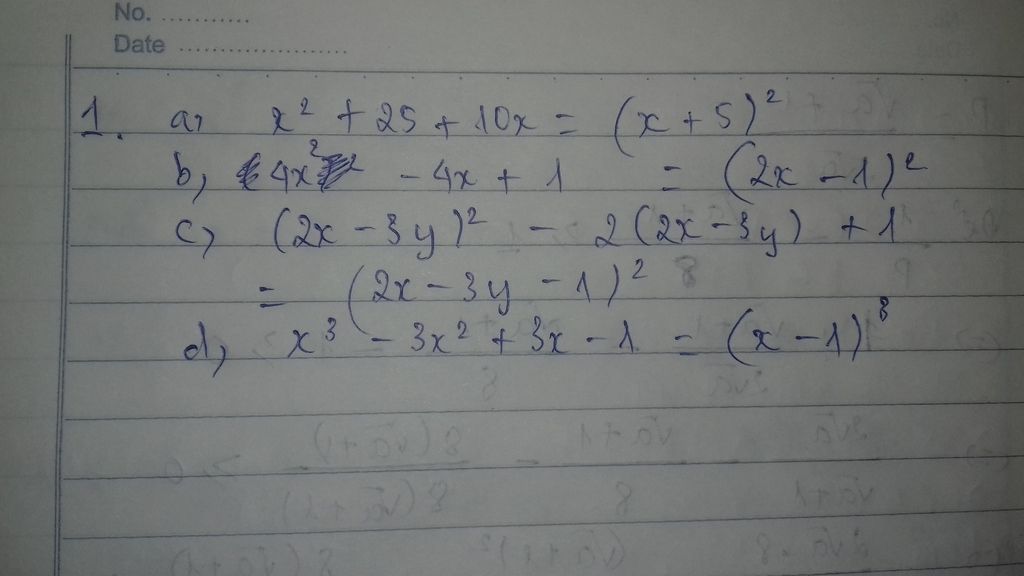 No. ............
Date ........................
1. a, x² + 25 + 10x = (x + 5)²
b, 4x² - 4x + 1 = (2x - 1)²
c, (2x - 3y)² - 2(2x - 3y) + 1
= (2x - 3y - 1)²
d, x³ - 3x² + 3x - 1 = (x - 1)³